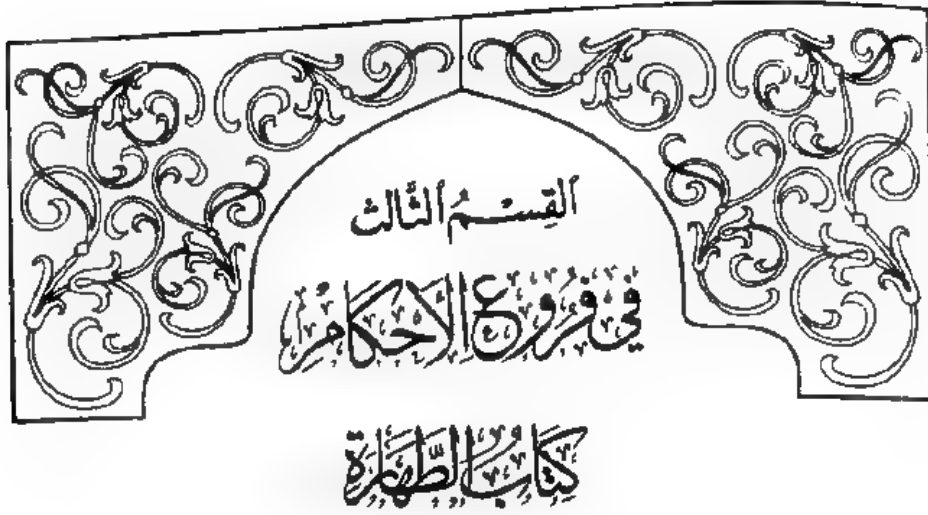 القِسْمُ الثَّالث
في فروع الأحكام
كتاب الطَّهارة